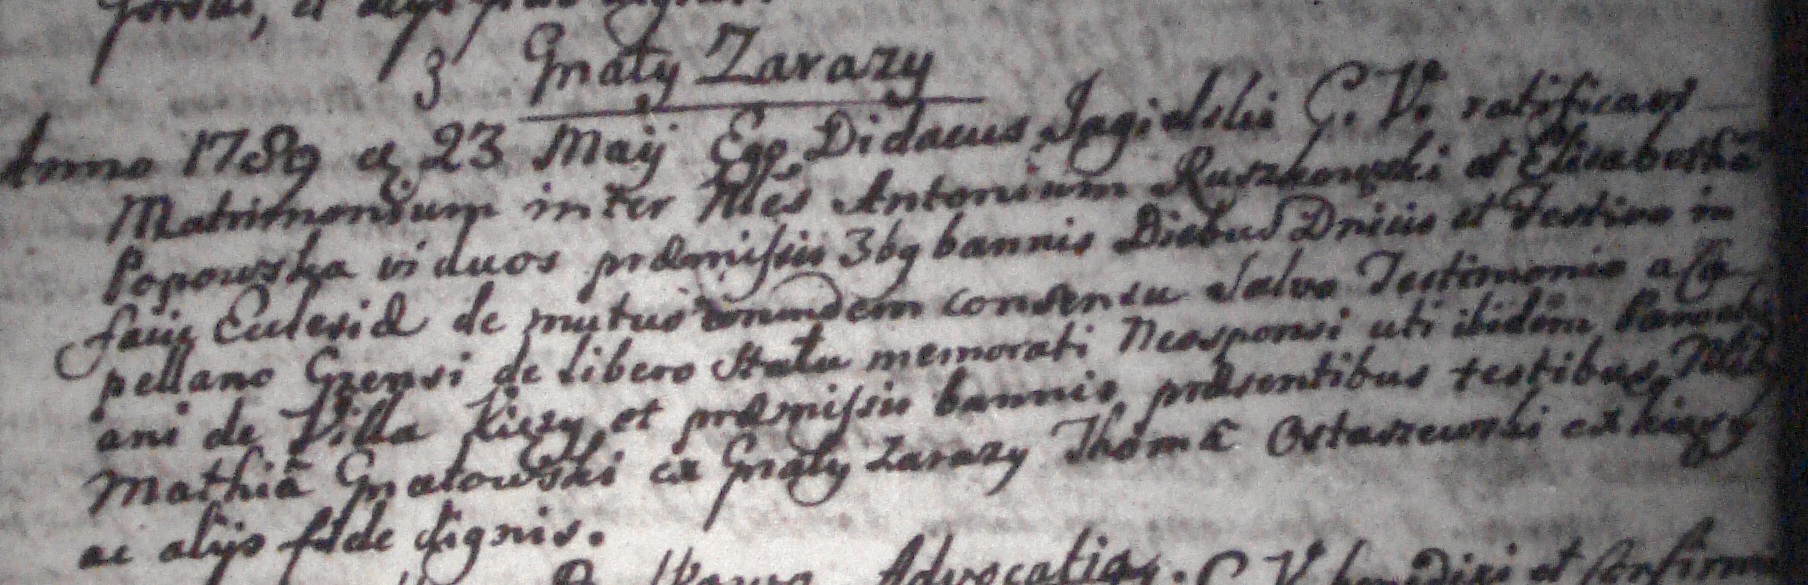 3 Gnaty Zarazy
Anno 1789 d 23 Maij Ego Didacus Jagielski C. V. ratificavi
Matrimonium inter Nles Antonium Ruszkowski et Elisabetham
Popowska viduos præmissis 3bq bannis Diebus Dnicis et Festivo in
facie Eclesiæ de mutuo eorumdem consensu Salvo Testimonio a Ca
pellano Gzensi de libero Statu memorati Neosponsi uti ibidem Paroch
ani de Villa Kiczy et præmissis bannis, præsentibus testibus Nlibus
Mathia Gnatowski ex Gnaty Zarazy Thoma Ostaszewski ex
ac alijs fide dignis.
Advocatia. C. V. benedixi et Confirm